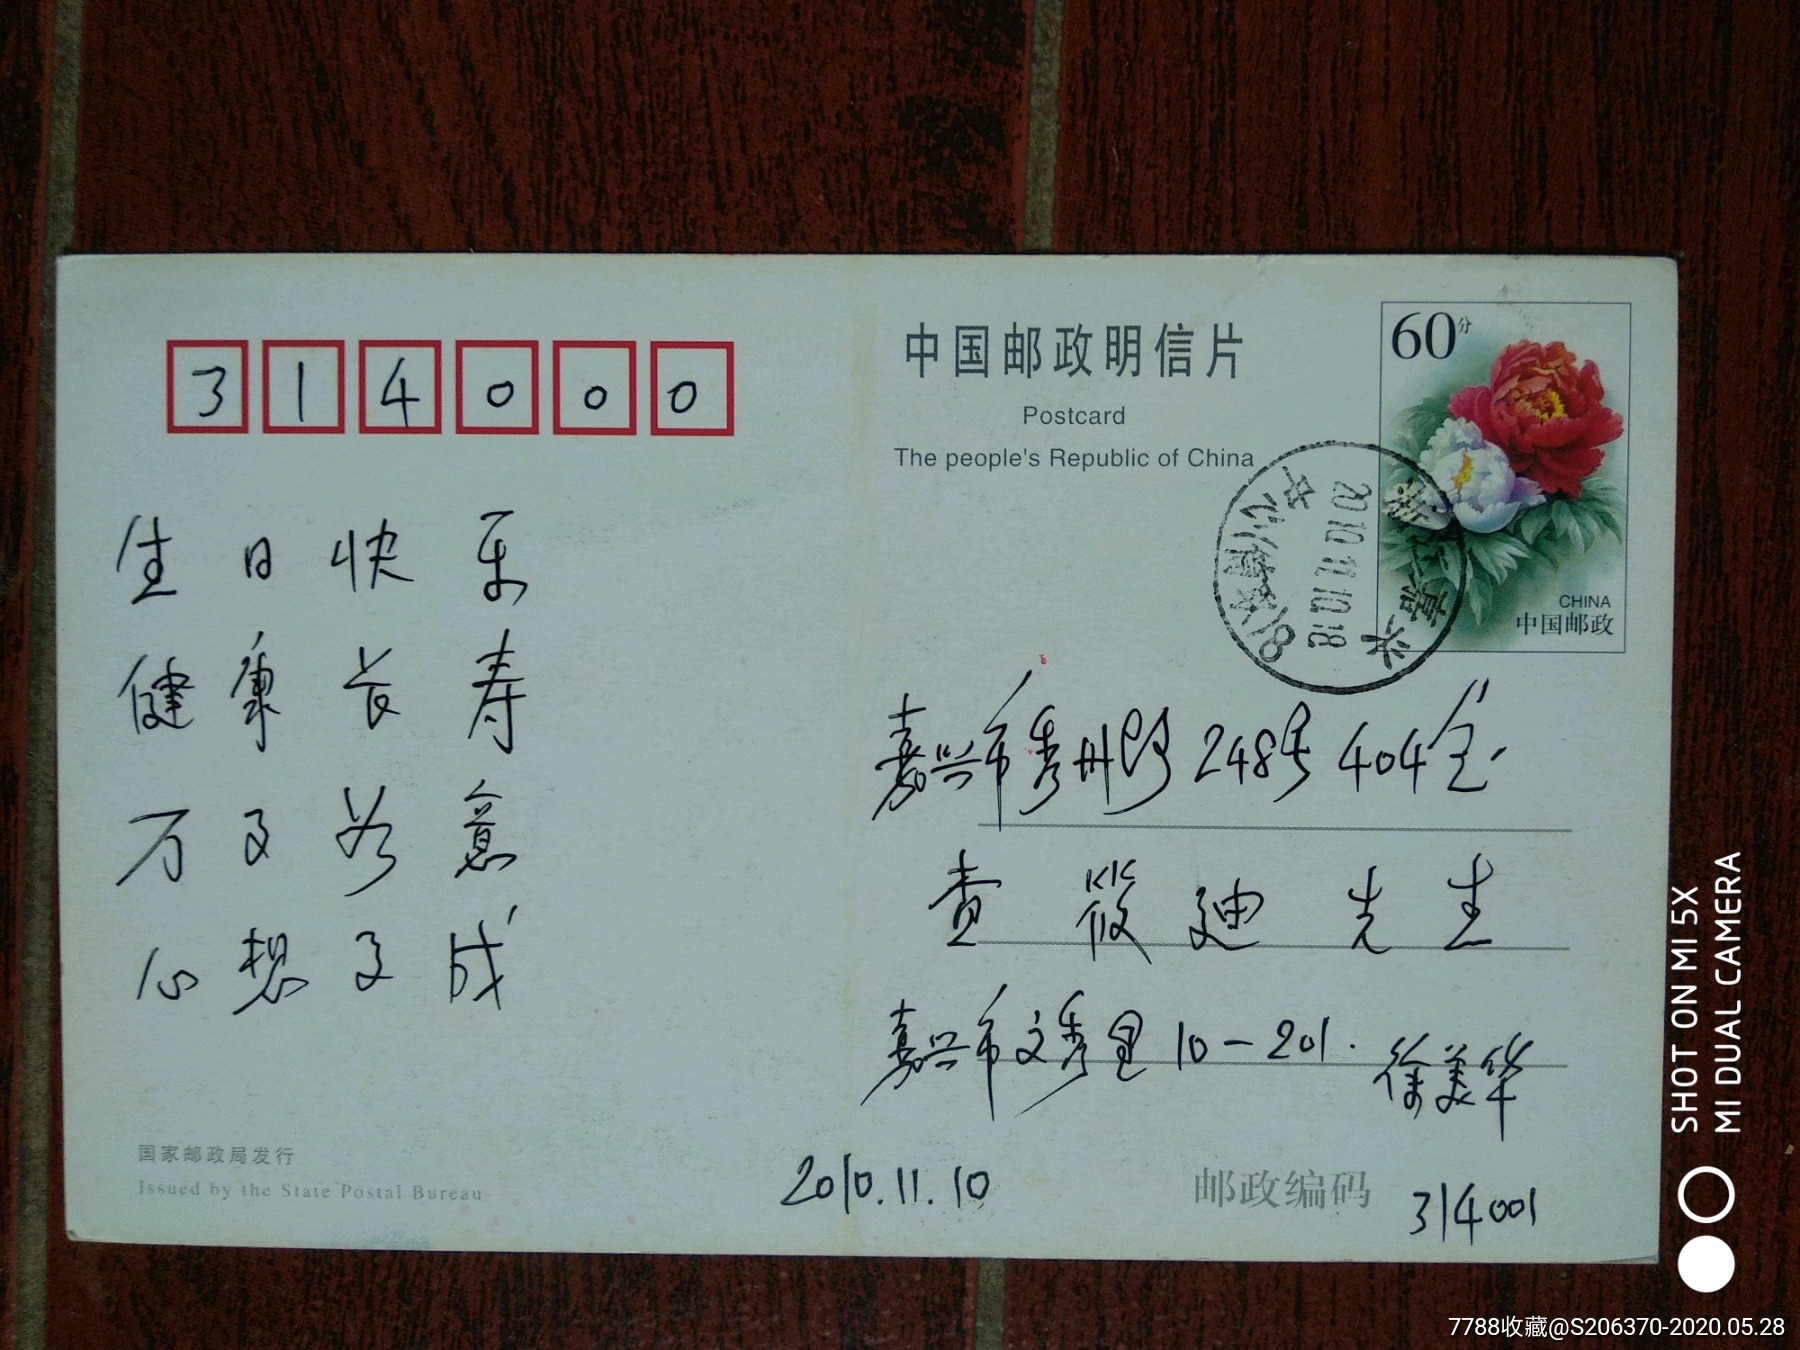 314000
中国邮政明信片
Postcard
The people's Republic of China
60分
CHINA
中国邮政
浙江嘉兴
2010.11.10.18
生日快乐
健康长寿
万事如意
心想事成
嘉兴市秀州路248号404室.
查筱迪先生
嘉兴市文秀里10-201.
徐美华
国家邮政局发行
Issued by the State Postal Bureau
2010.11.10
邮政编码
314001
SHOT ON MI 5X
MI DUAL CAMERA
7788收藏@S206370-2020.05.28